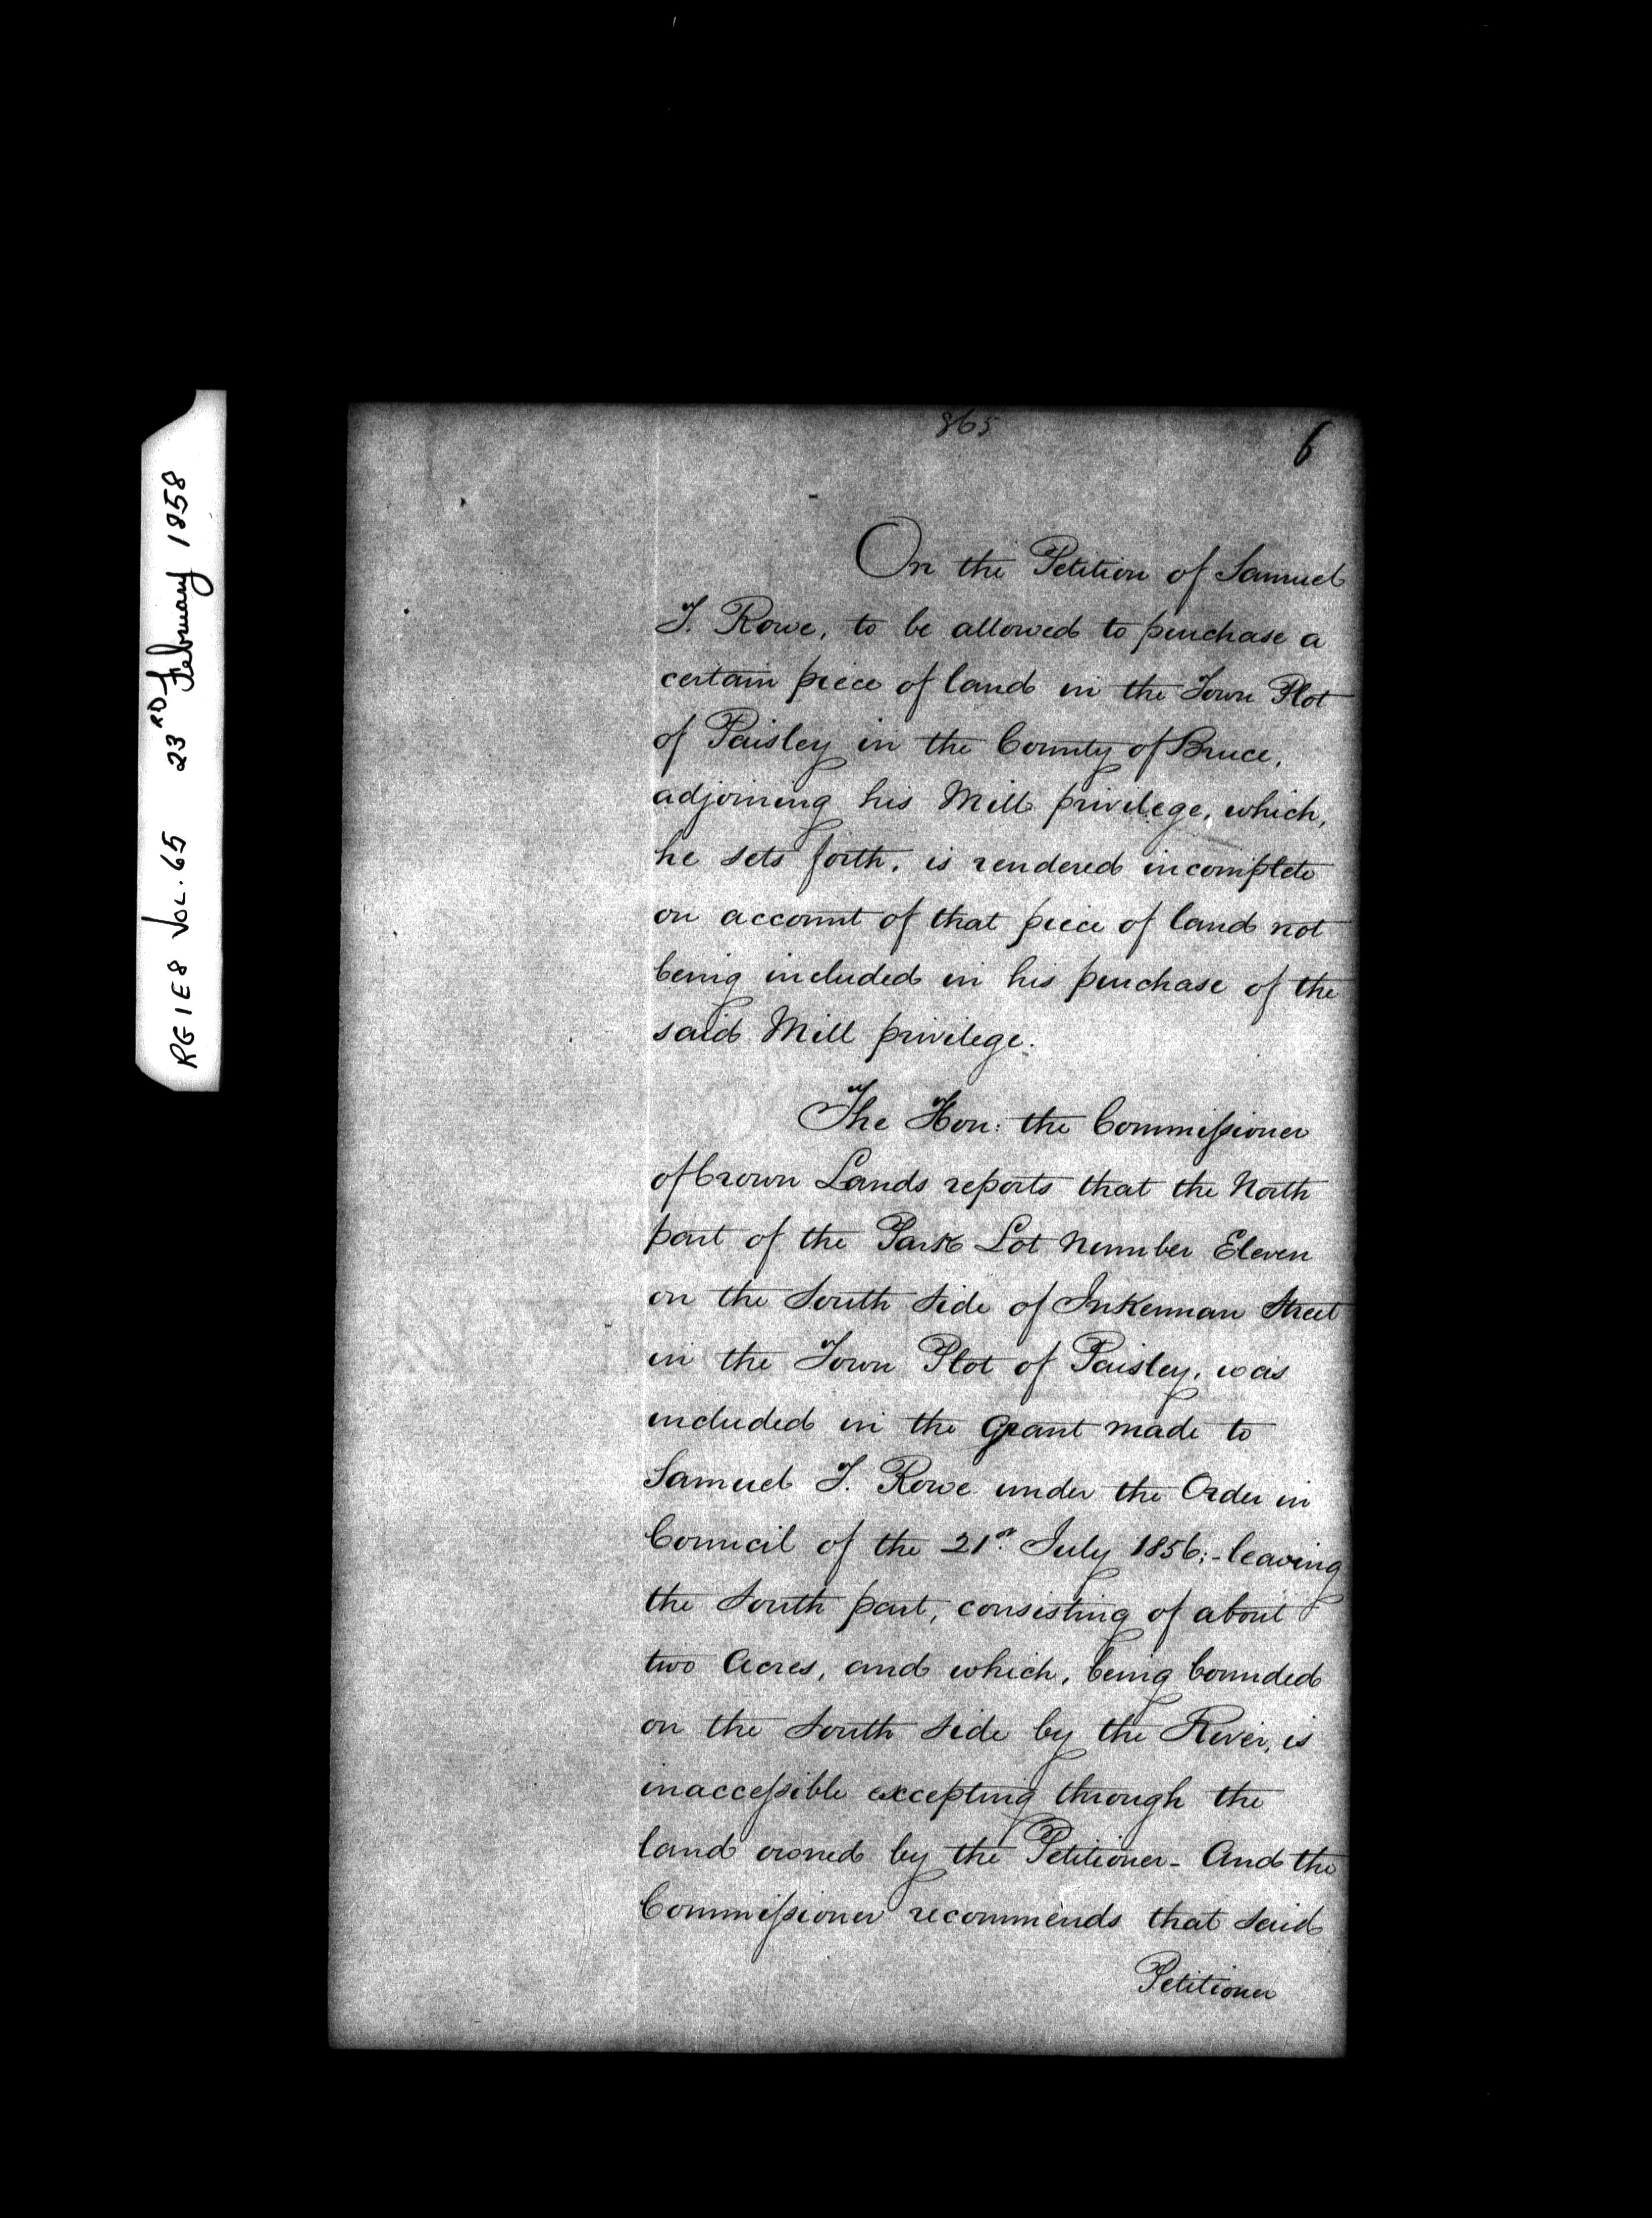 RG1E8 VOL. 65 23RD February 1858
865
6
On the Petition of Samuel
T. Rowe, to be allowed to purchase a
certain piece of land in the Town Plot
of Paisley in the County of Bruce,
adjoining his Mill privilege, which,
he sets forth, is rendered incomplete
on account of that piece of land not
being included in his purchase of the
said Mill privilege.
The Hon: the Commissioner
of Crown Lands reports that the North
part of the Park Lot Number Eleven
on the South side of Inkerman Street
in the Town Plot of Paisley, was
included in the grant made to
Samuel T. Rowe under the Order in
Council of the 21st July 1856;- leaving
the South part, consisting of about
two Acres, and which, being bounded
on the South side by the River, is
inaccessible excepting through the
land owned by the Petitioner - And the
Commissioner recommends that said
Petitioner